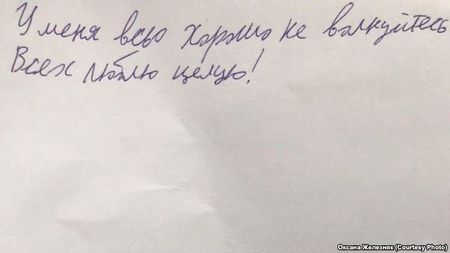 У меня всьо хорошо не волнуйтесь
Всех люблю целую!
Оксана Железняк (Courtesy Photo)